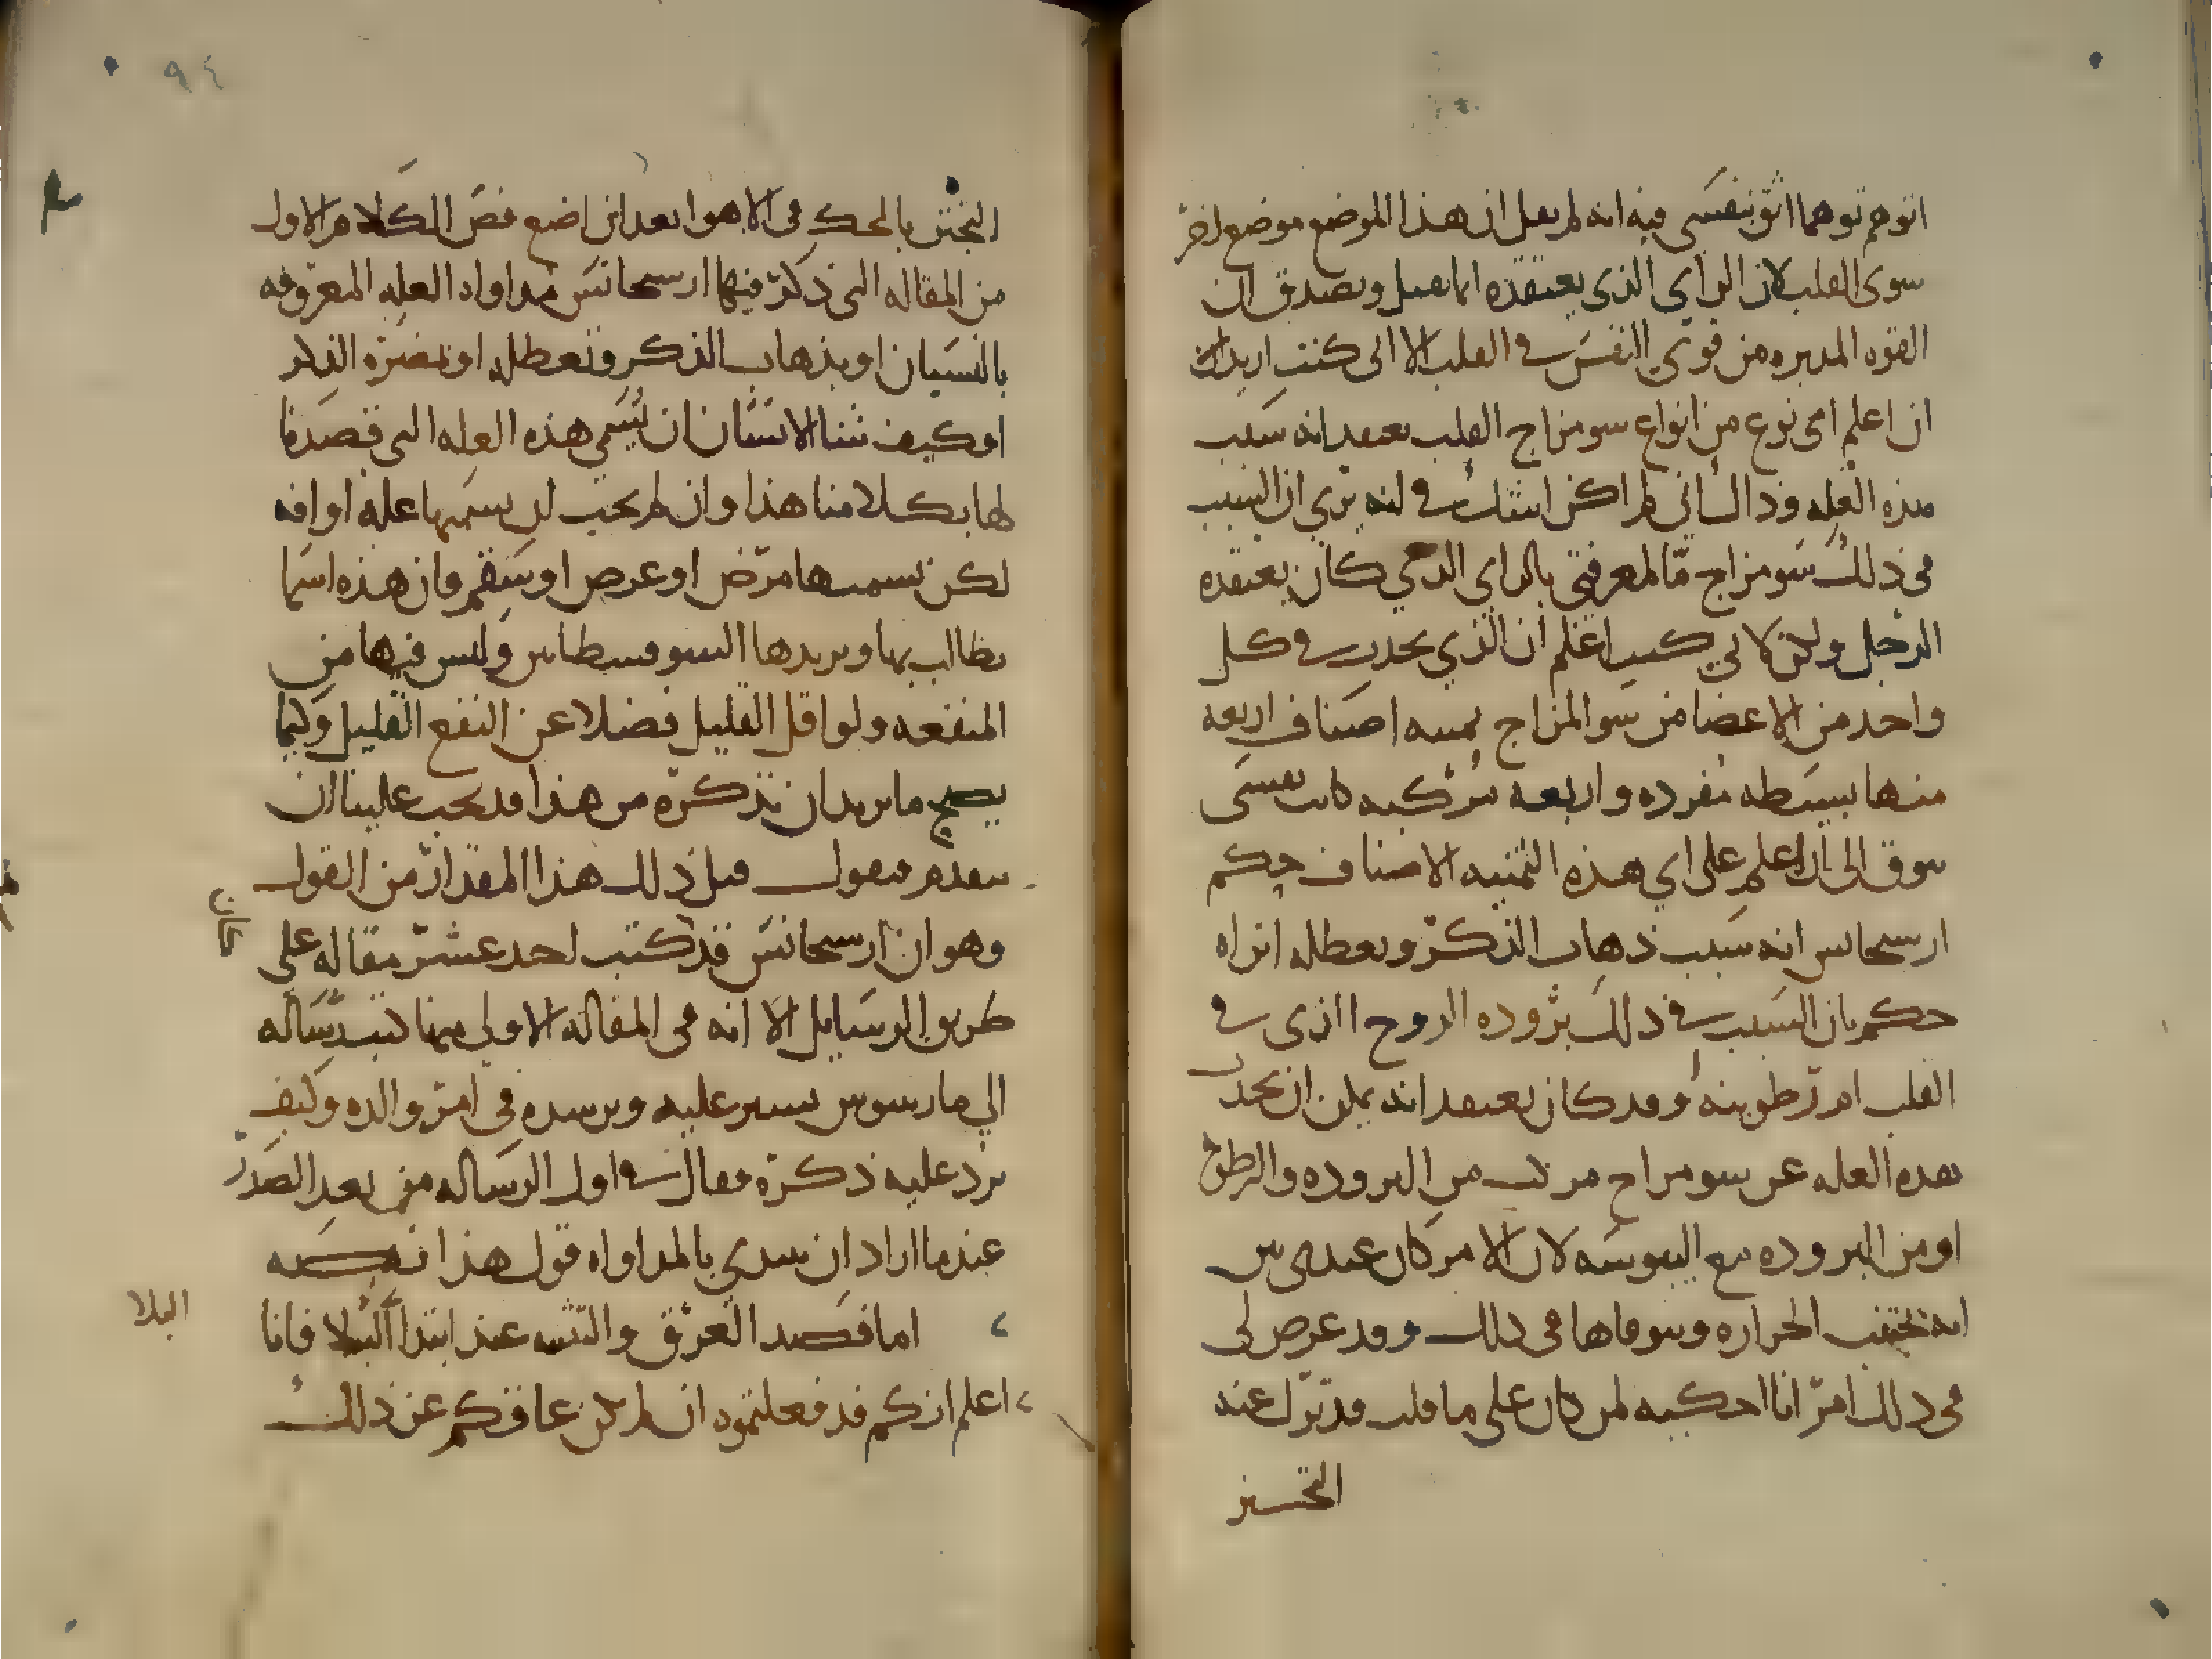 اتوهم توهما اثق بنفسى فيه انه لم يقل ان هذا الموضع موضع اخر
سوى القلب لان الراى الذى يعتقده انما يقبل ويصدق ان
القوه المدبره من قوى النفس فى القلب الا انى كنت اريد
ان اعلم اى نوع من انواع سو مزاج القلب يعتقد انه سبب
هذه العله وذاك انى لم اكن اشك فى انه يرى ان السبب
فى ذلك سو مزاج ما لمعرفتى بالراى الذى كان يعتقده
الرجل ولكن لانى كنت اعلم ان الذى يحدث فى كل
واحد من الاعضا من سو المزاج ثمنيه اصناف اربعه
منها بسيطه مفرده واربعه مركبه كانت نفسى
تتوق الى ان اعلم على اي هذه الثمنيه الاصناف حكم
ارسجانس انه سبب ذهاب الذكر وتعطله اتراه
حكم بان السبب فى ذلك بروده الروح الذى فى
القلب ام رطوبته وقد كان يعتقد انه يمكن ان تحدث
هذه العله عن سو مزاج مركب من البروده والرطوبه
او من البروده مع اليبوسه لان الامر كان عندى بين
انه يجتنب الحراره ويتوقاها فى ذلك وقد عرض لى
فى ذلك امر انا احكيه لمن كان على ما قلت قد ترك عنه
التحسير
٩٤
البحث بالمحك فى الاهوا بعد ان اضع فص الكلام الاول
من المقاله التى ذكر فيها ارسجانس مداواه العله المعروفه
بالنسيان او بذهاب الذكر وتعطله او بمضره الذكر
او كيف شا الانسان ان يسمى هذه العله التى قصدنا
لها بكلامنا هذا وان لم يحب ان يسميها عله او افه
لكن يسميها مرض او عرض او سقم فان هذه اسما
يطالب بها ويريدها السوفسطاس وليس فيها من
المنفعه ولو اقل القليل فضلا عن النفع القليل وكيما
يصح ما نريد ان نذكره من هذا قد يجب علينا ان
نتقدم فنقول قبل ذلك هذا المقدار من القول
وهو ان ارسجانس قد كتب احد عشر مقاله على
كان
طريق الرسايل الا انه فى المقاله الاولى منها كتب رساله
الي مارسوس يشير عليه ويرشده فى امر والده وكيف
يرد عليه ذكره فقال فى اول الرساله من بعد الصدر
عندما اراد ان يبتدي بالمداواه قول هذا نصه
اما فصد العرق والتنبيه عند ابتدا البلا فانا
البلا
اعلم انكم قد فعلتموه ان لم يكن عاقكم عن ذلك